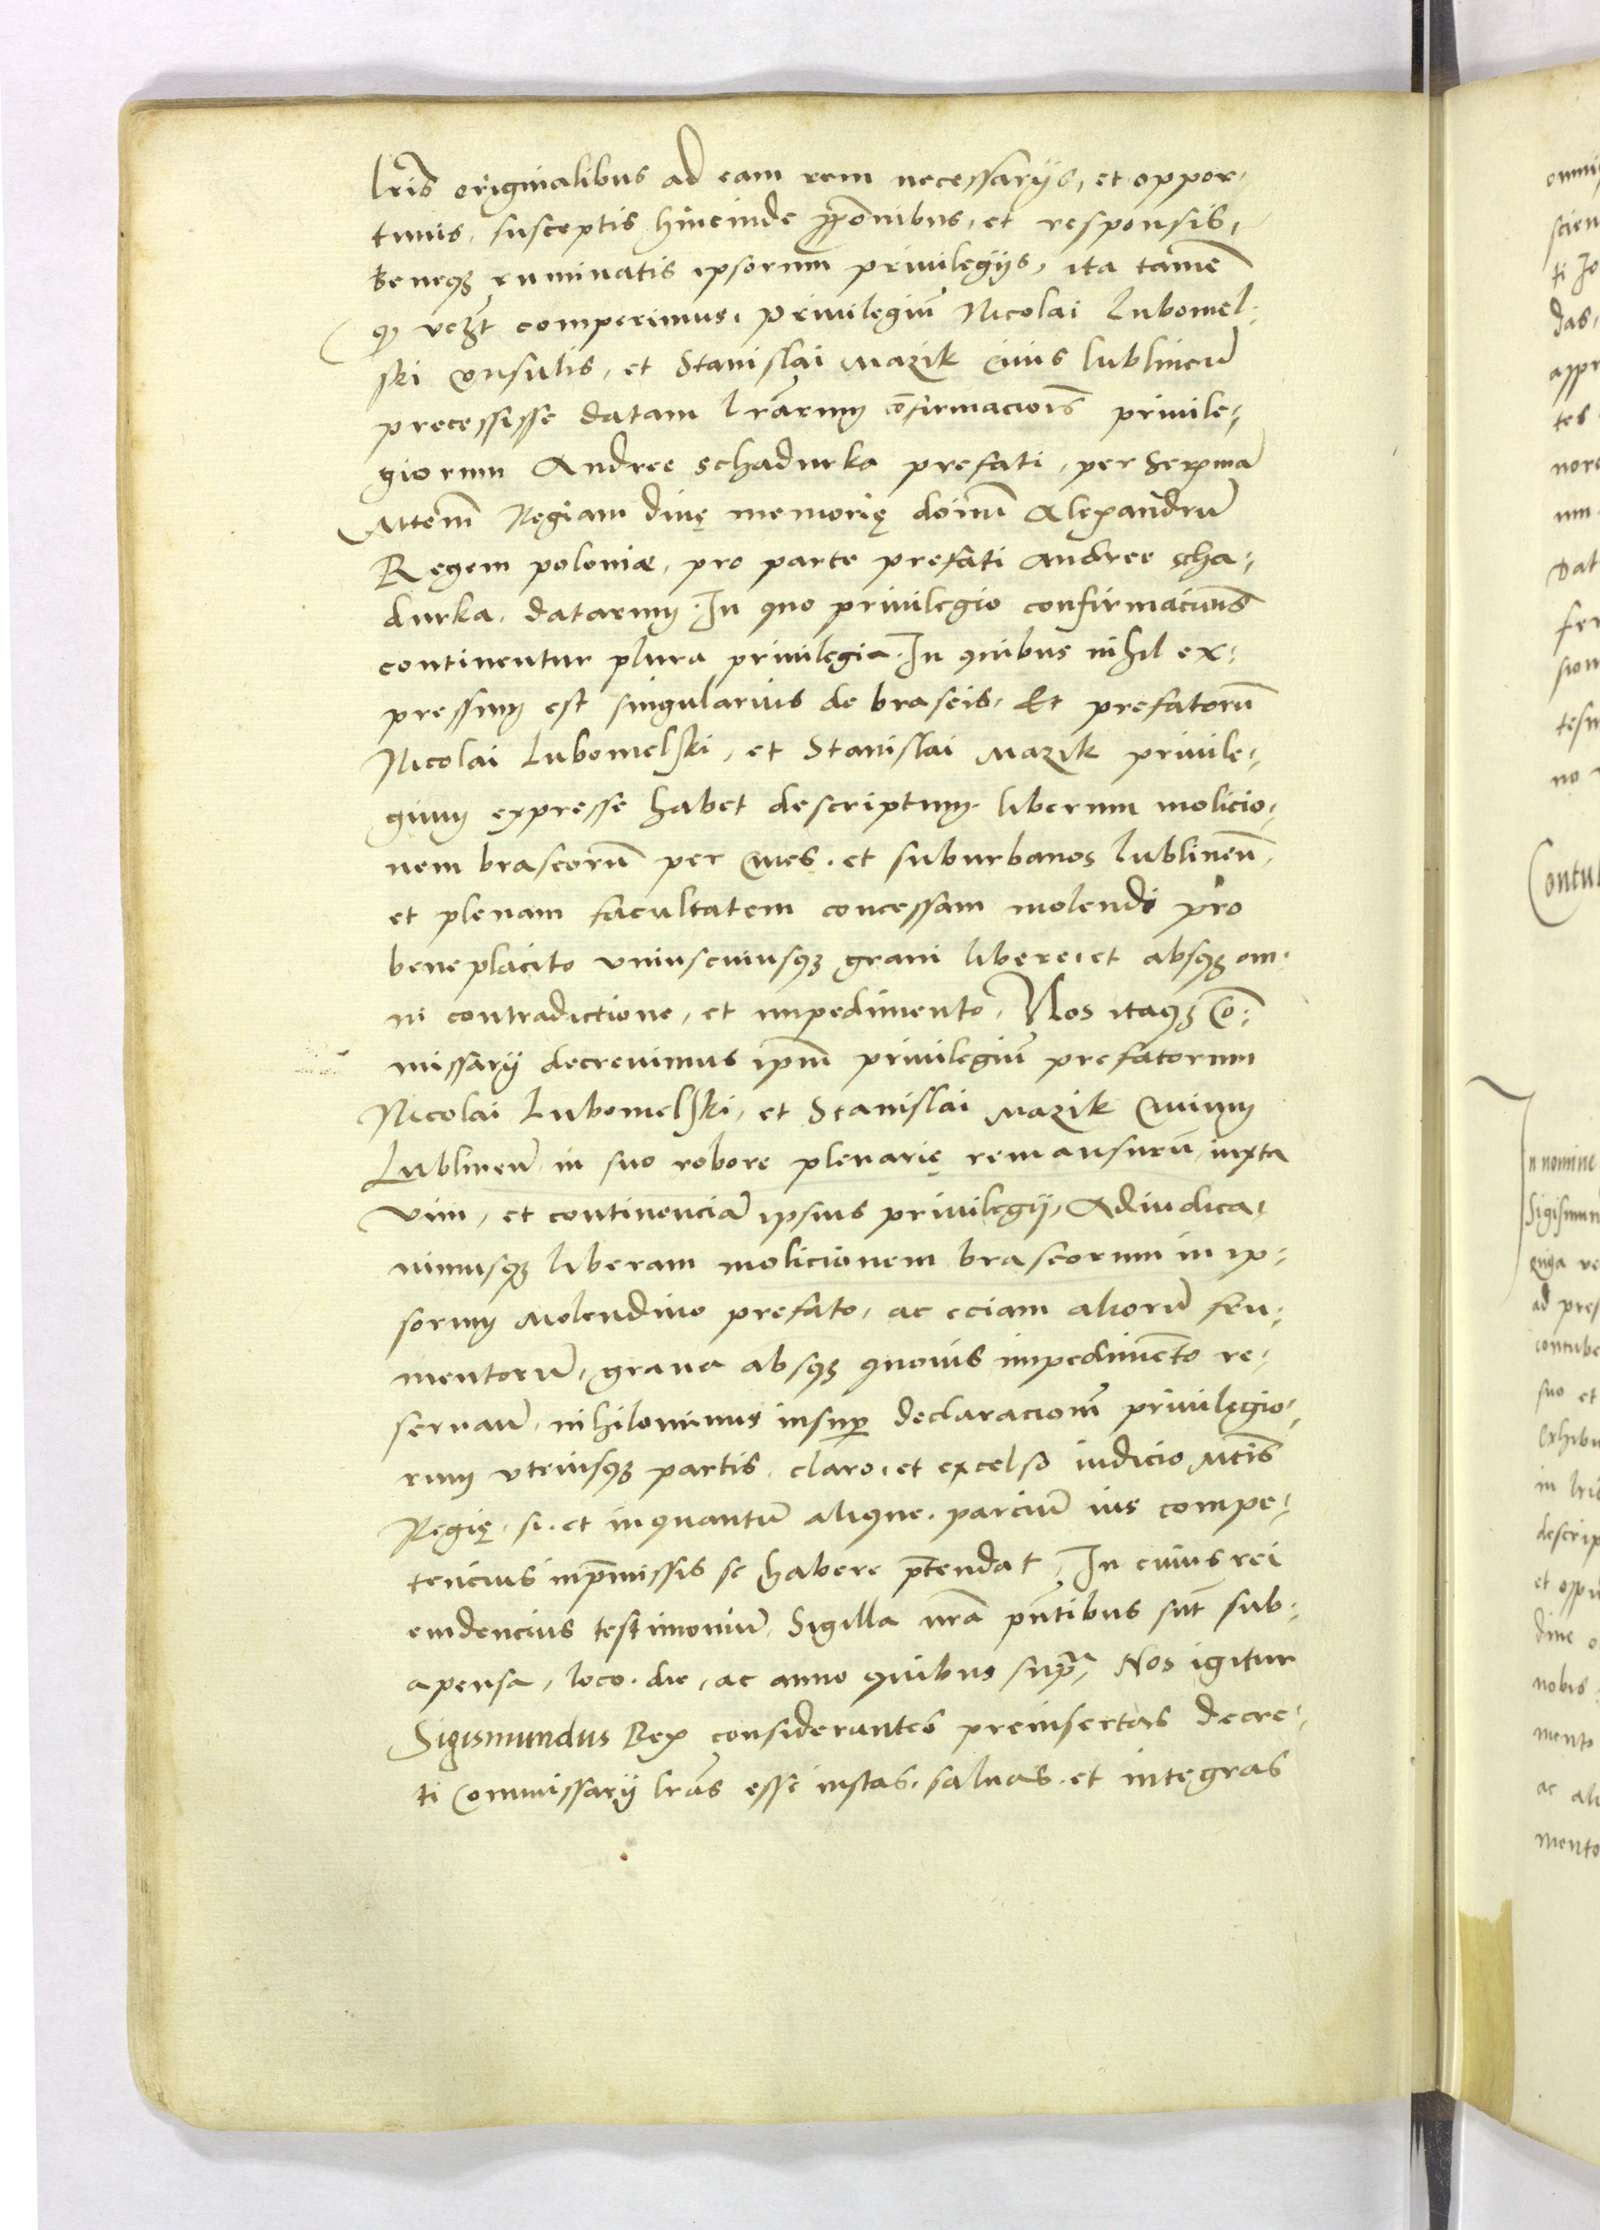 lrīs originalibus ad eam rem necessarijs, et oppor-
tunis, susceptis hincinde ꝓpōnibus, et responsis,
beneqꝫ ruminatis ipsorum priuilegijs, ita tamē
comperimus, priuilegiū Nicolai Lubomel-
ski consulis, et Stanislai Mazik ciuis lublineñ
precessisse datam lrārum cōfirmaciōīs priuile-
giorum Andree schadurka prefati, per Serꝫmā
Mttem̄ Regiam diuę memorię dom̄ Alexandrū
Regem poloniæ, pro parte prefati Andree scha-
durka, datarum. In quo priuilegio confirmacionīs
continentur plura priuilegia. In quibus nihil ex-
pressum est singularius de braseis. Et prefatorū
Nicolai Lubomelski, et Stanislai Mazik priuile-
gium expresse habet descriptum liberum molicio-
nem braseorū per ciues, et suburbanos lublineñ,
et plenam facultatem concessam molendi pro
beneplacito vniuscuiusqꝫ grani libere, et absqꝫ om-
ni contradictione, et impedimento, Nos itaqꝫ cō-
missarij decreuimus ipm̄ priuilegiū prefatorum
Nicolai Lubomelski, et Stanislai Mazik Ciuium
Lublineñ in suo robore plenarię remansurū, iuxta
vim, et continenciā ipsius priuilegij, Adiudica-
uimusqꝫ liberam molicionem braseorum in ip-
sorum Molendino prefato, ac eciam aliorū fru-
mentorū, grana absqꝫ quouis impedimēto re-
seruauī, nihilominus insuꝑ declaracionē priuilegio-
rum vtriusqꝫ partis, claro, et excelso iudicio Mtīs
Regię, si, et inquantū aliqua, parciū ius compe-
tencius inp̄missis se habere p̄tendat, In cuius rei
euidencius testimoniū, Sigilla nrā pn̄tibus sūt sub-
apensa, loco, die, ac anno quibus supra, Nos igitur
Sigismundus Rex considerantes preinsertas decre-
ti Commissarij lrās esse iustas, saluas, et integras